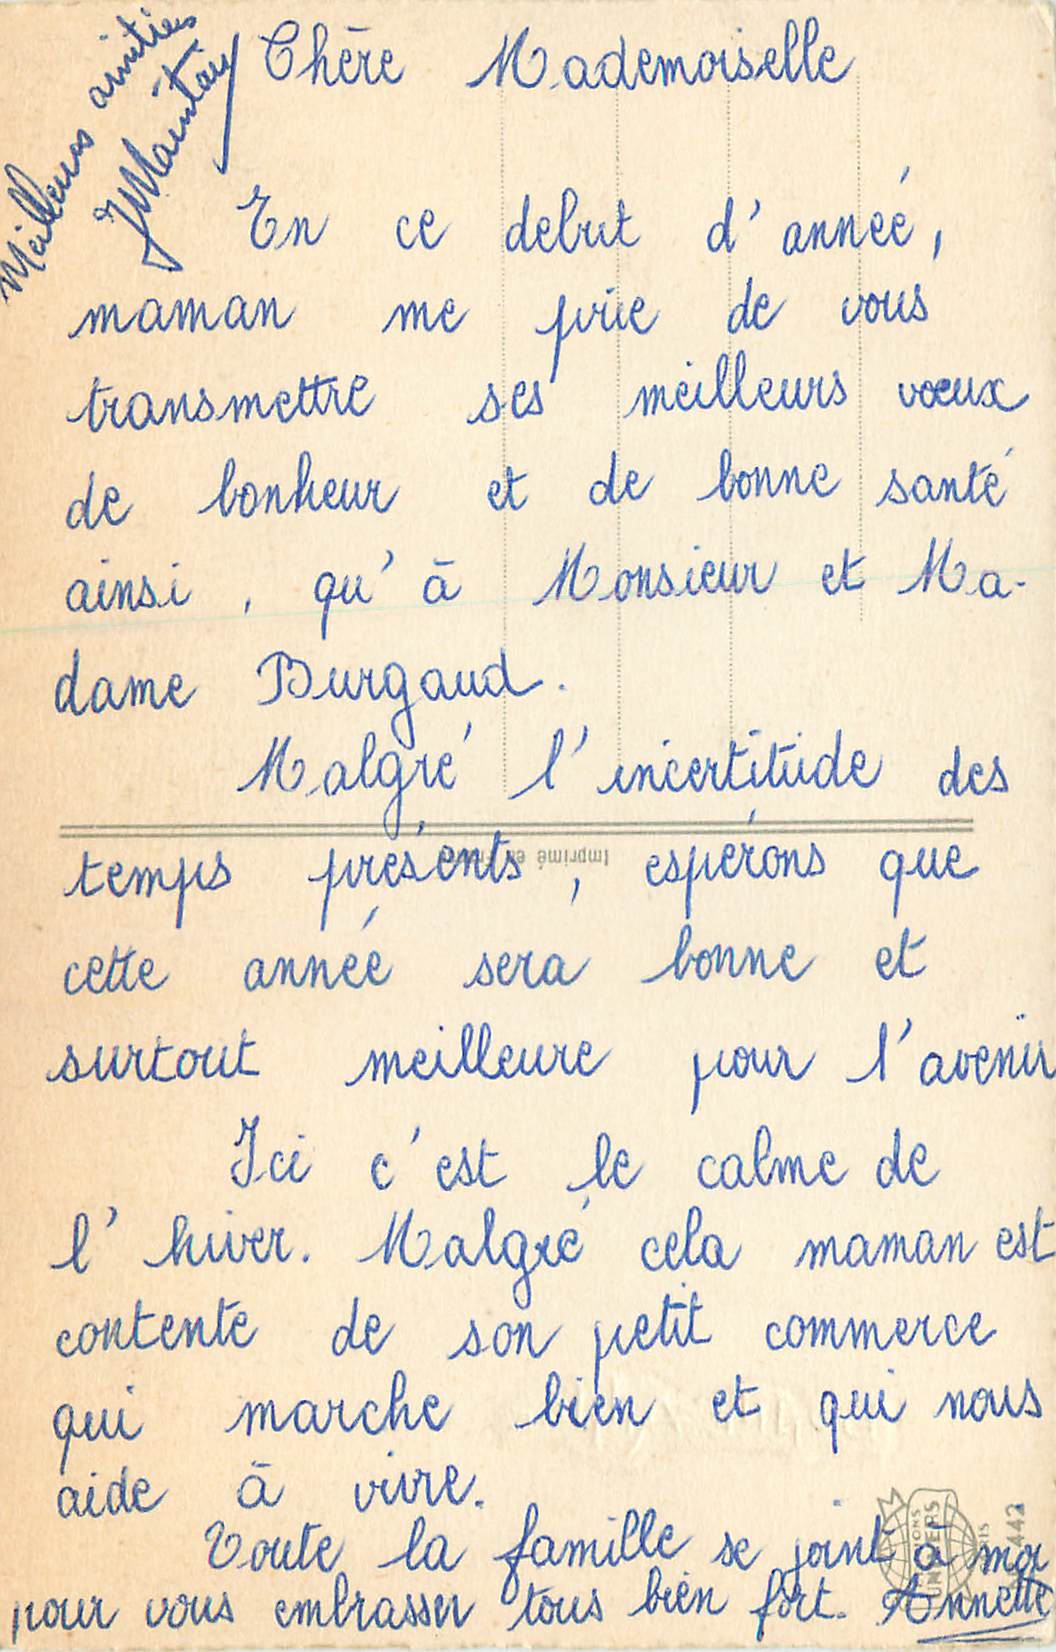 Meilleures amitiés
Chère Mademoiselle
En ce debut d'année,
maman me prie de vous
transmettre ses meilleurs vœux
de bonheur et de bonne santé
ainsi, qu'à Monsieur et Ma-
dame Burgaud.
Malgré l'incertitude des
temps présents, espérons que
cette année sera bonne et
surtout meilleure pour l'avenir
Ici c'est le calme de
l'hiver. Malgré cela maman est
contente de son petit commerce
qui marche bien et qui nous
aide à vivre.
Toute la famille se joint à moi
pour vous embrasser tous bien fort. Annette
Imprimé en